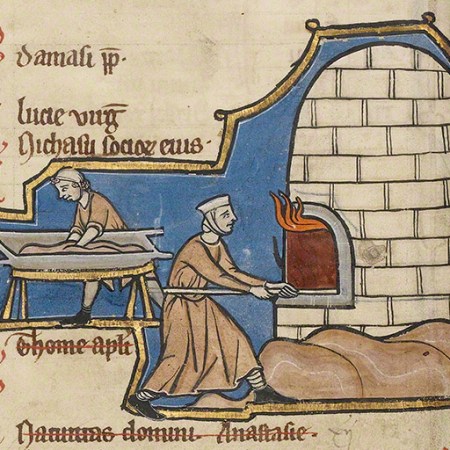 damasi pp̅.
lucie virg̅
Nichasii socior eius.
Thome apli
Natiuitas domini. Anastasie.